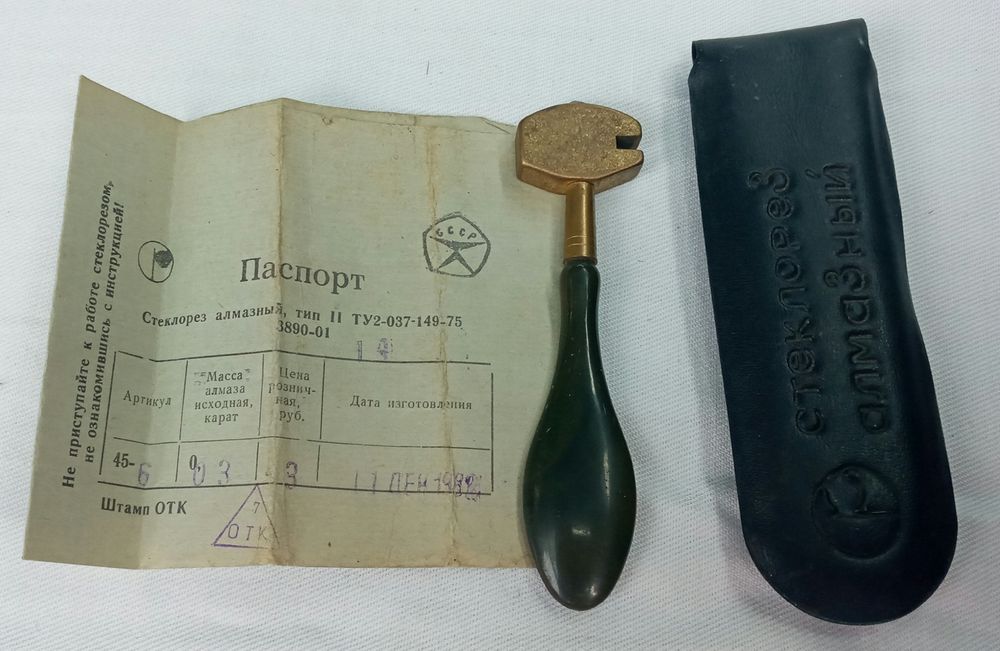 Не приступайте к работе стеклорезом,
не ознакомившись с инструкцией!
СССР
Паспорт
Стеклорез алмазный, тип II ТУ2-037-149-75
3890-01
Артикул
Масса
алмаза
исходная,
карат
Цена
рознич-
ная,
руб.
Дата изготовления
45-6
0, 03
3
11 ДЕК
Штамп ОТК
7
ОТК
стеклорез
алмазный